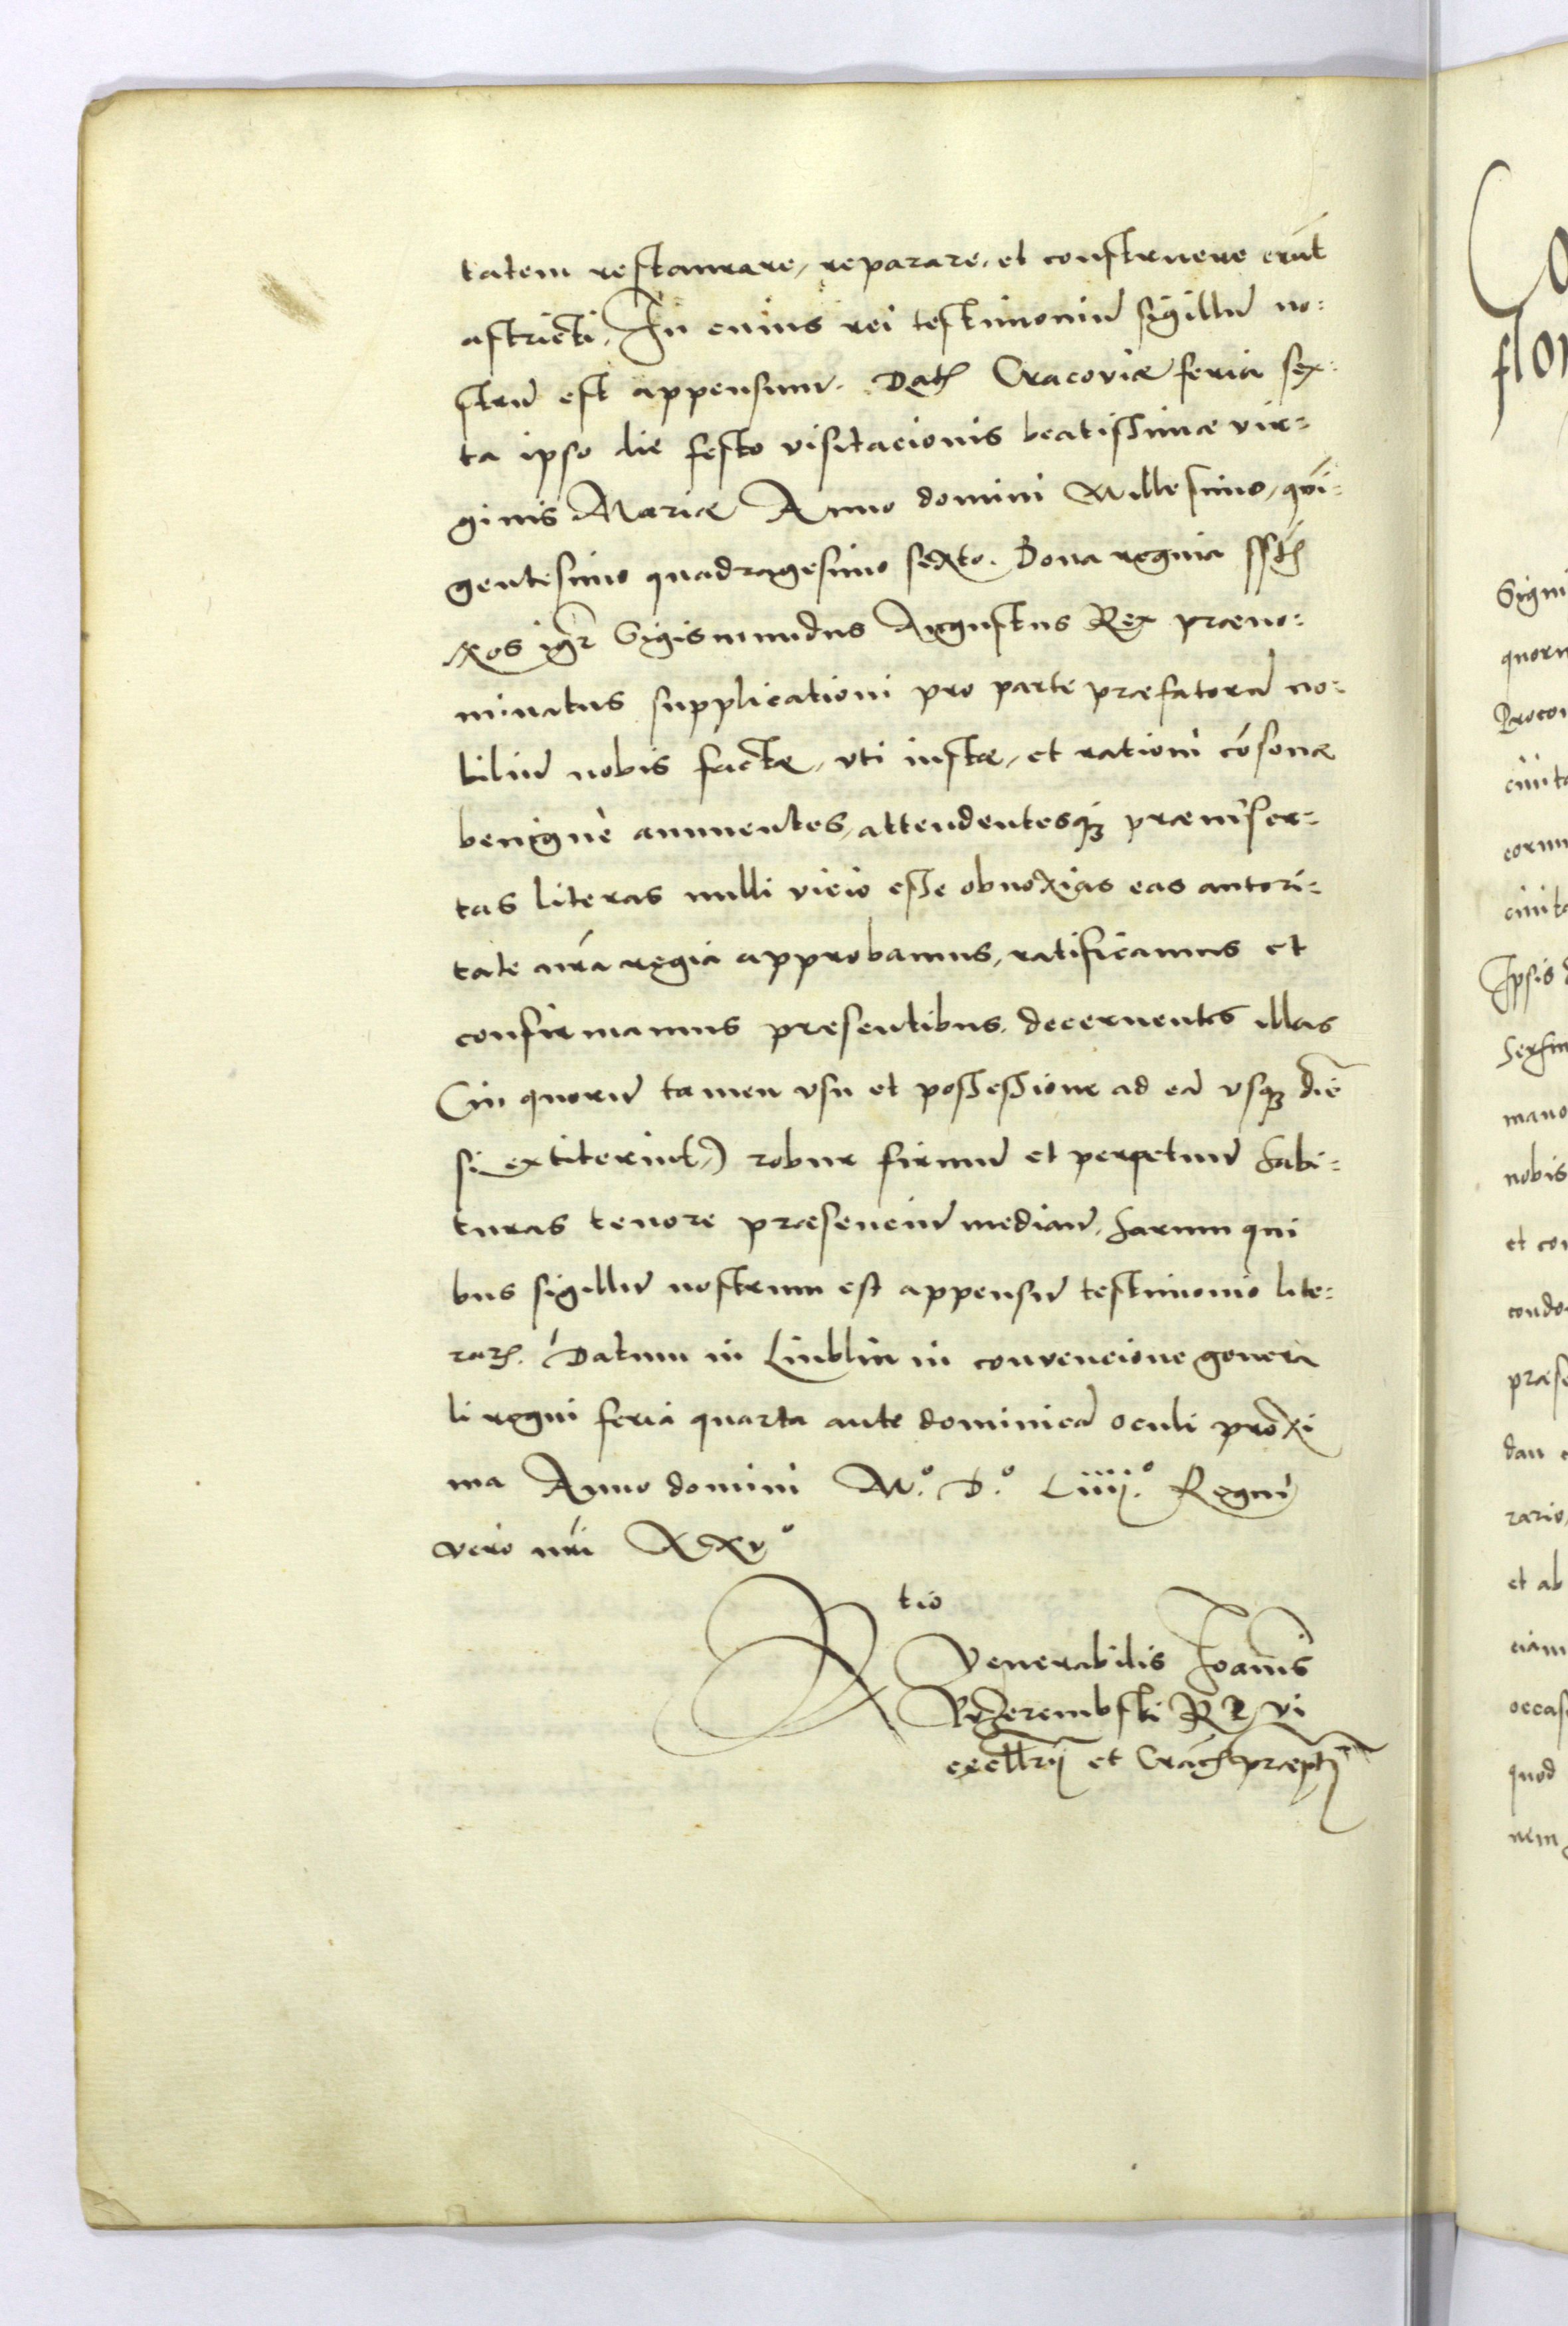 tatem restaurare, reparare, et construere erūt
astricti, In cuius rei testimoniū sigillū no:
strū est appensum. Dat Cracoviæ feria sex:
ta ipso die festo visitacionis beatissimæ vir:
ginis Mariæ Anno domini Millesimo, quī:
gentesimo quadragesimo sexto. Bona regina sst
Nos igr Sigismundus Augustus Rex præno:
minatus supplicationi pro parte præfatorū no:
biliū nobis factæ, vti iustæ, et rationi cōsonæ
benigne annuentes, attendentesq; præinser:
tas literas nulli vicio esse obnoxias eas autori:
tate nrā regia approbamus, ratificamus et
confirmamus presentibus. decernentes illas
(in quorū tamen vsu et possessione ad eā vsq; diē
si extiterint,) robur firmū et perpetuū habi:
turas tenore præsenciū mediañ. harum qui
bus sigillū nostrum est appensū testimonio lite:
rar. Datum in Liublin in convencione genera
li regni feria quarta ante dominicā oculi proxi
ma Anno domini M.º D.º Liiij.º Regni
vero nri XXvº
Rtio
Venerabilis Joannis
Przerembski R P vi
cecllrij et Crac præpti
Signi
quoru
Procon
ciuita
eorum
ciuita
Ipsis
mano
nobis
et con
condo
præse
dan
rario,
et ab
ciam
occas
quod
nem